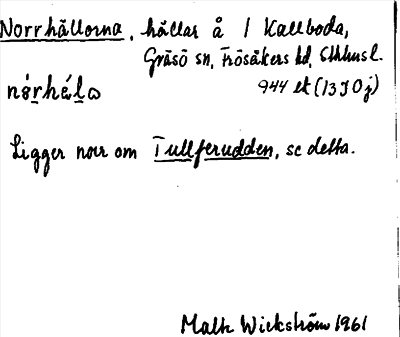 Norrhällorna, hällar å 1 Kallboda,
Gräsö sn, Frösåkers hd, Sthlms l.
nó̱rhɛ́lɷ 944 ek (13J0j)
Ligger norr om Tullferudden, se detta.
Malte Wickström 1961